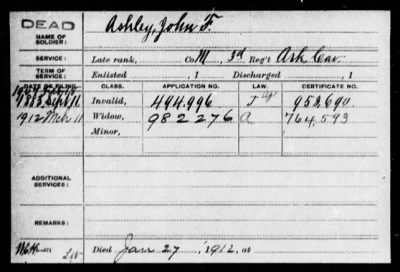 DEAD
NAME OF SOLDIER: Ashley, John F.
SERVICE: Late rank, Co. M, 3d Reg't Ark Cav.
TERM OF SERVICE: Enlisted , 1 Discharged , 1
DATE OF FILING. CLASS. APPLICATION NO. LAW. CERTIFICATE NO.
Sept 11 Invalid, 494.996 953,690
1912 Mch 11 Widow, 982276 A 764,593
Minor,
ADDITIONAL SERVICES:
REMARKS:
Died Jan 27, 1912, at